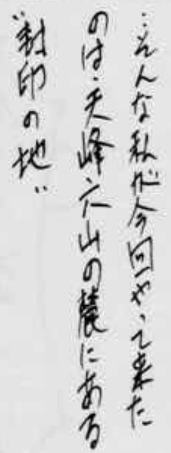 …そんな私が今回やって来た
のは、天峰穴山の麓にある
"封印の地"